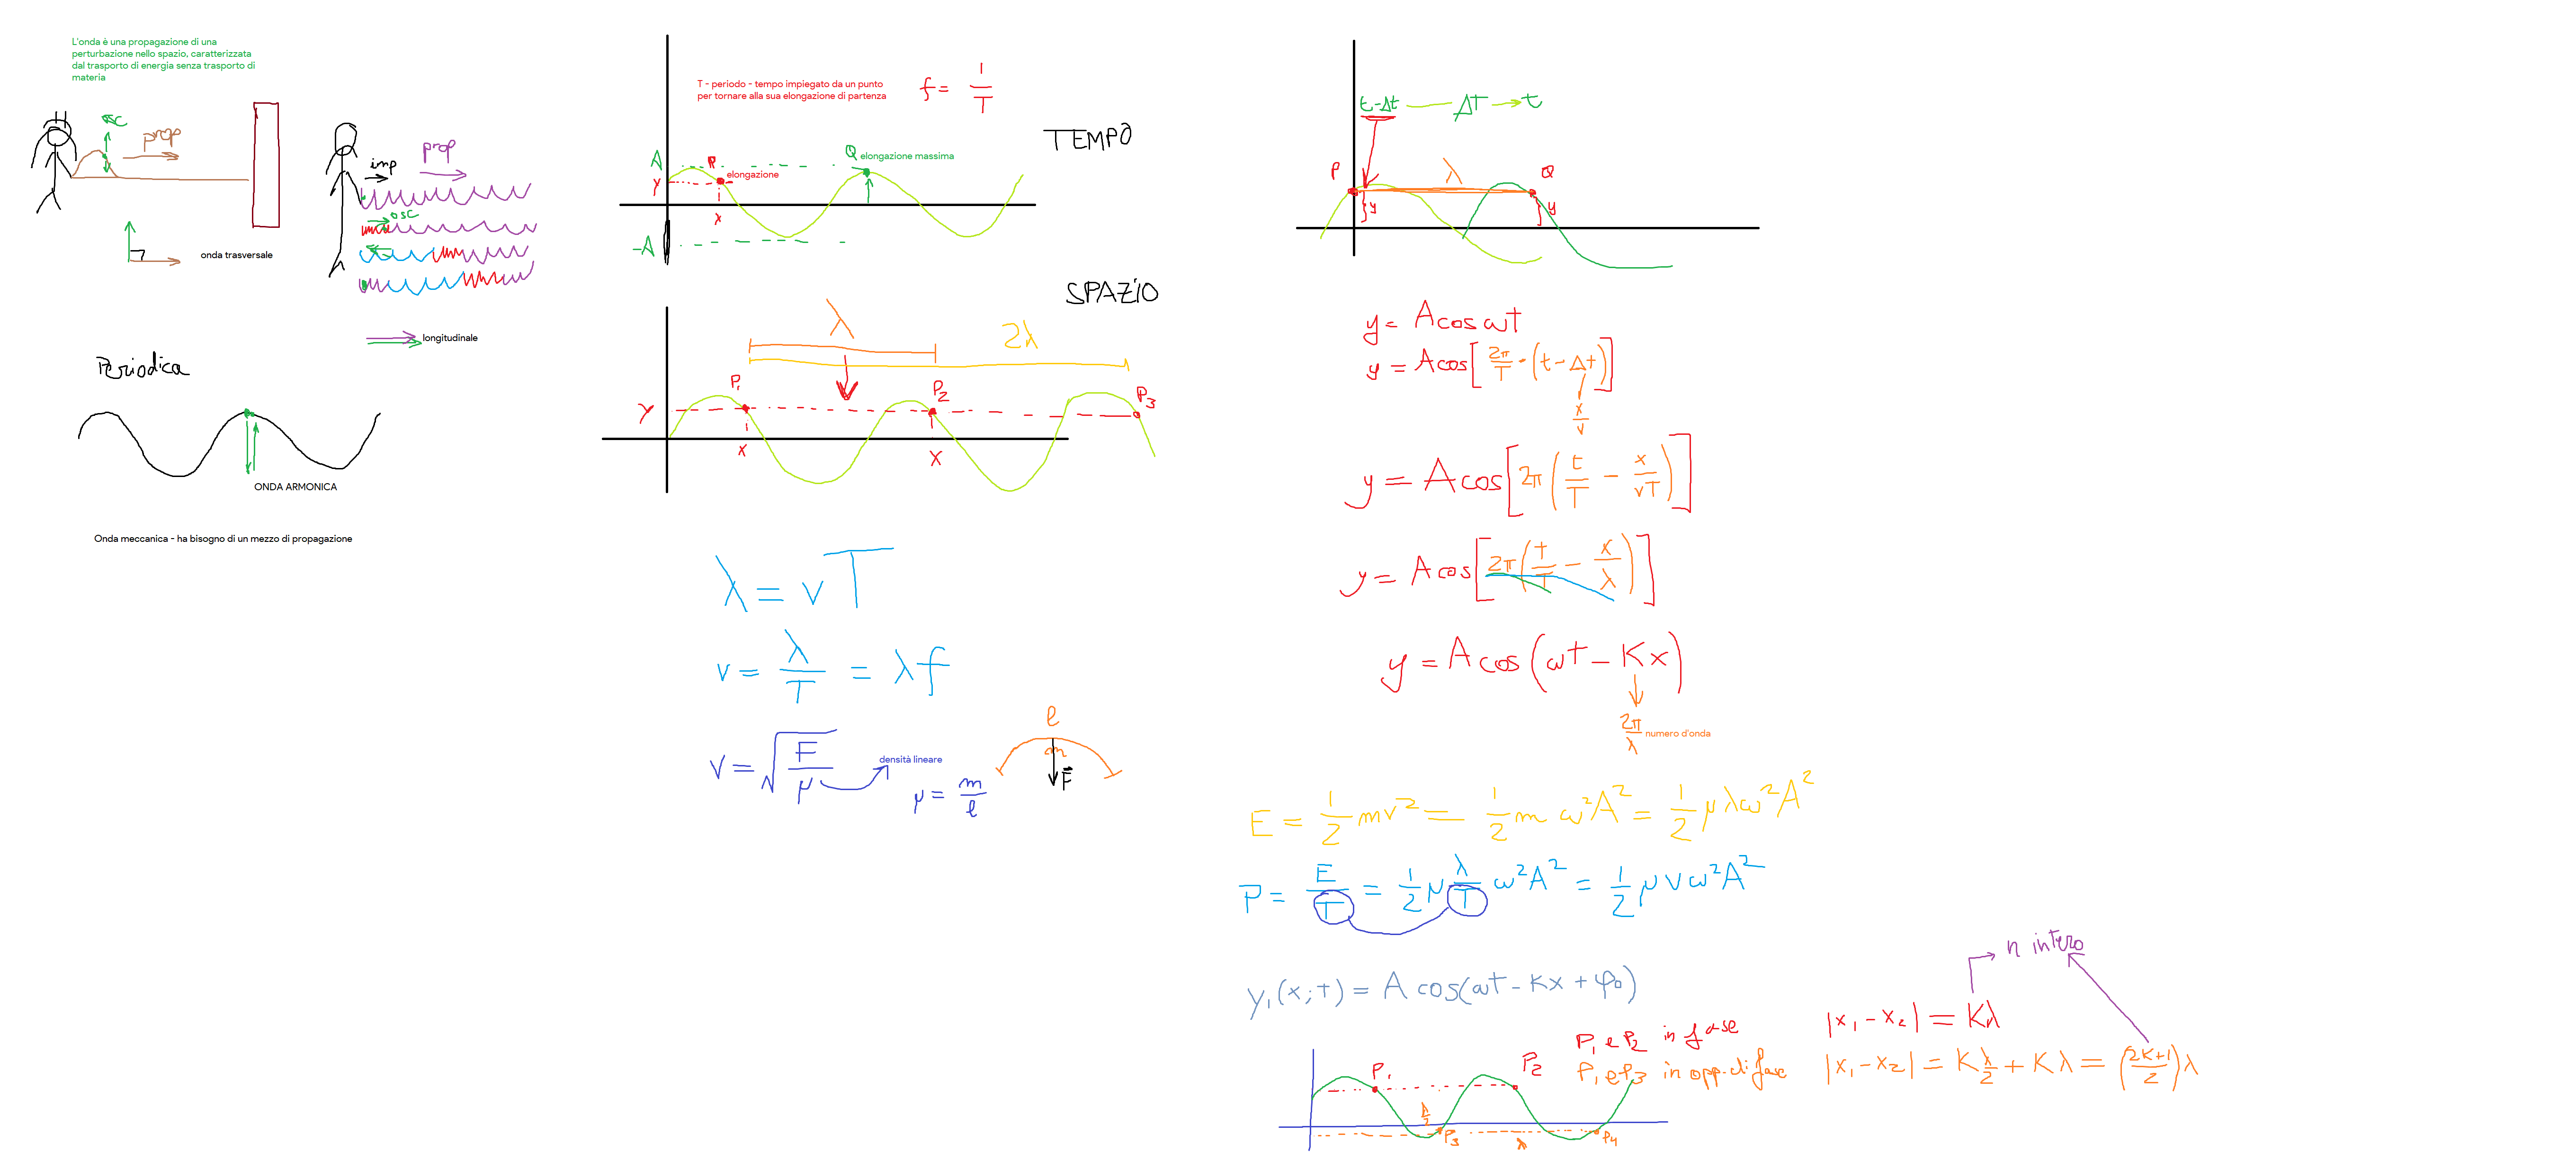 L'onda è una propagazione di una
perturbazione nello spazio, caratterizzata
dal trasporto di energia senza trasporto di
materia
osc
prop
onda trasversale
imp
prop
osc
longitudinale
Periodica
ONDA ARMONICA
Onda meccanica - ha bisogno di un mezzo di propagazione
T - periodo - tempo impiegato da un punto
per tornare alla sua elongazione di partenza
f = 1/T
TEMPO
A
P
Q elongazione massima
elongazione
y
x
-A
SPAZIO
λ
2λ
P₁
P₂
P₃
y
x
x
λ = vT
v = λ/T = λf
v = √(F/μ)
densità lineare
μ = m/l
l
m
F⃗
t-Δt Δt t
P
λ
Q
y
y
y = A cos ωt
y = A cos[2π/T · (t - Δt)]
x/v
y = A cos[2π(t/T - x/vT)]
y = A cos[2π(t/T - x/λ)]
y = A cos(ωt - Kx)
2π/λ numero d'onda
E = 1/2 mv² = 1/2 m ω²A² = 1/2 μλω²A²
P = E/T = 1/2 μ λ/T ω²A² = 1/2 μvω²A²
y₁(x;t) = A cos(ωt - Kx + φ₀)
P₁ e P₂ in fase
P₁ e P₃ in opp. di fase
P₁
P₂
λ/2
P₃
λ
P₄
n intero
|x₁ - x₂| = Kλ
|x₁ - x₂| = K λ/2 + Kλ = ((2K+1)/2)λ